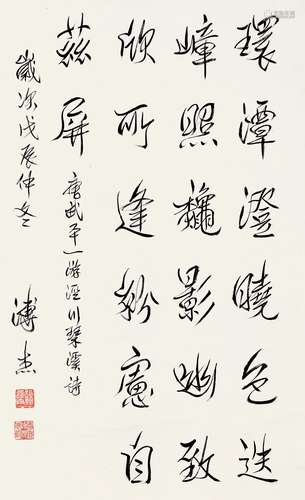 環潭澄曉色迭
嶂照龝影幽致
欣所逢紛慮自
茲屏
唐武平一游涇川琹溪詩
歲次戊辰仲冬
溥杰